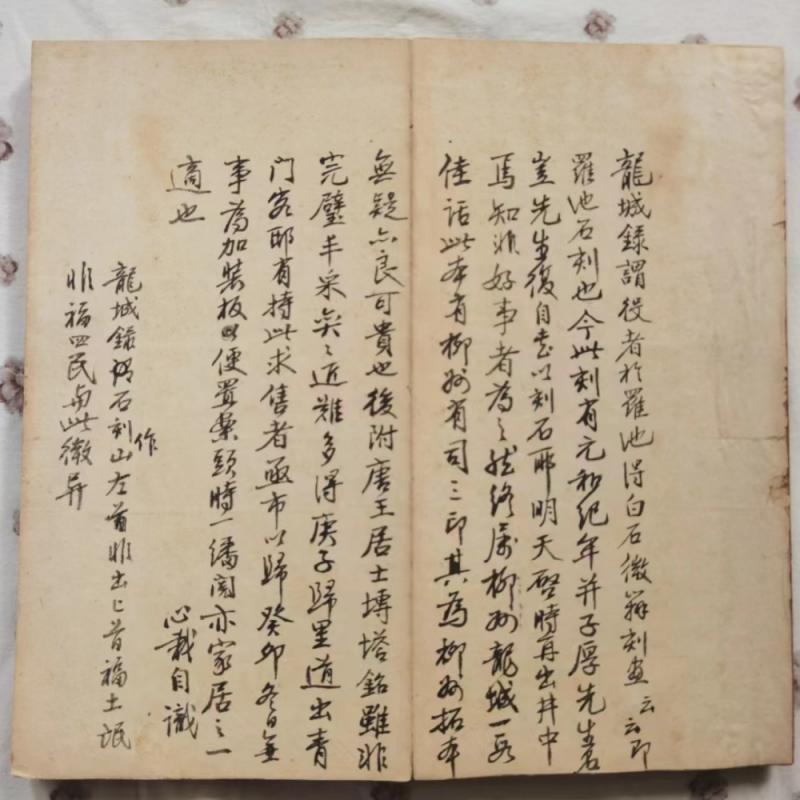 龍城錄謂役者於羅池得白石微辨刻畫云云即
羅池石刻也今此刻有元和紀年并子厚先生名
豈先生復自書以刻石耶明天啓時再出井中
焉知非好事者為之然終屬柳州龍城一段
佳話此本有柳州有司之印其為柳州拓本
無疑亦良可貴也後附唐王居士塼塔銘雖非
完璧丰采奕〻近難多得庚子歸里道出青
門客邸有持此求售者亟市以歸癸卯冬日無
事為加裝板以便置案頭時一繙閱亦家居之一
適也
心栽自識
龍城錄謂石刻作山左首非出匕首福土氓
非福四民與此微異